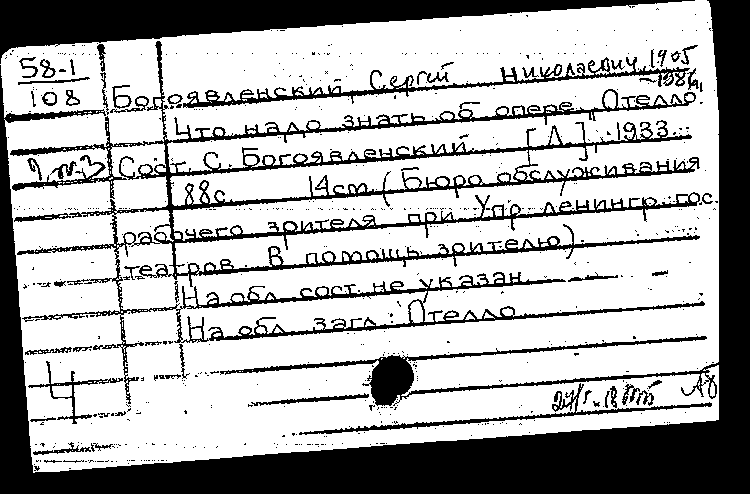 58-1
108
Богоявленский, Сергей Николаевич, 1905
-1986
Что надо знать об опере „Отелло".
Сост. С. Богоявленский. [Л.], 1933.
88с. 14см (Бюро обслуживания
рабочего зрителя при Упр. ленингр. гос.
театров. В помощь зрителю).
На обл. сост. не указан.
На обл. загл.: Отелло
4